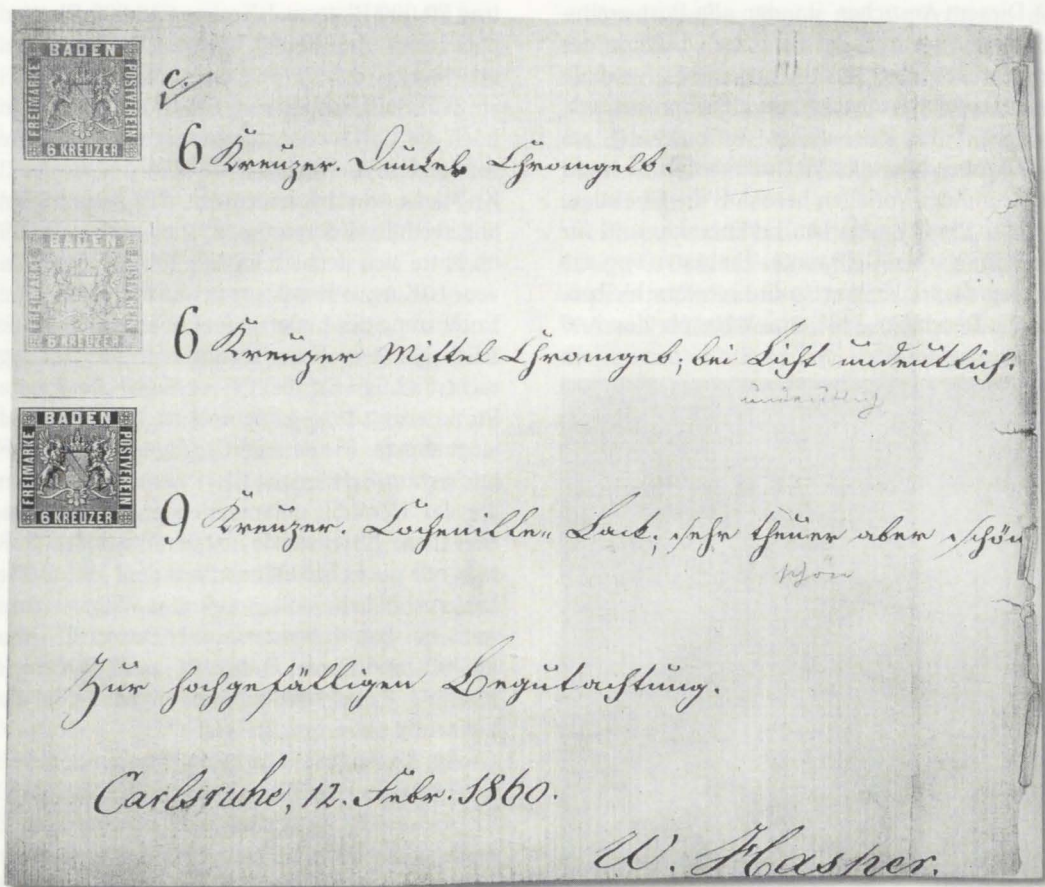 BADEN
FREIMARKE
POSTVEREIN
6 KREUZER
6 Kreuzer. Dunkel Chromgelb.
BADEN
FREIMARKE
POSTVEREIN
6 KREUZER
6 Kreuzer Mittel Chromgeb; bei Licht undeutlich.
undeutlich
BADEN
FREIMARKE
POSTVEREIN
6 KREUZER
9 Kreuzer. Cochenille-Lack; sehr theuer aber schön
schön
Zur hochgefälligen Begutachtung.
Carlsruhe, 12. Febr. 1860.
W. Hasper.